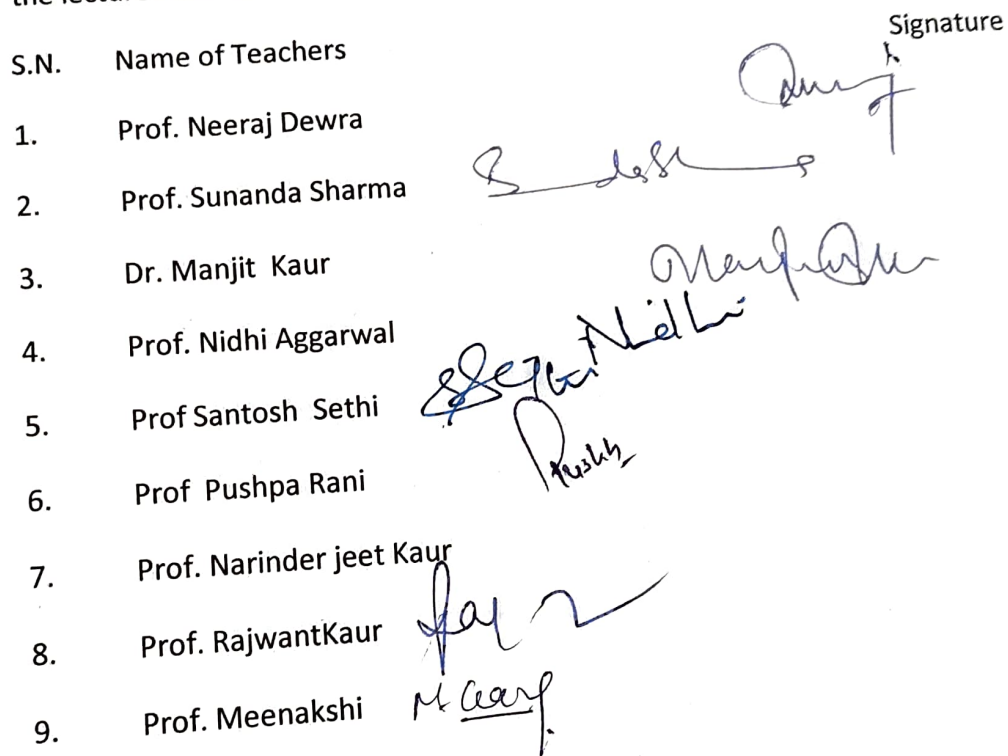 Signature
S.N. Name of Teachers
1. Prof. Neeraj Dewra
2. Prof. Sunanda Sharma
3. Dr. Manjit Kaur
4. Prof. Nidhi Aggarwal Nidhi
5. Prof Santosh Sethi
6. Prof Pushpa Rani
7. Prof. Narinder jeet Kaur
8. Prof. RajwantKaur
9. Prof. Meenakshi